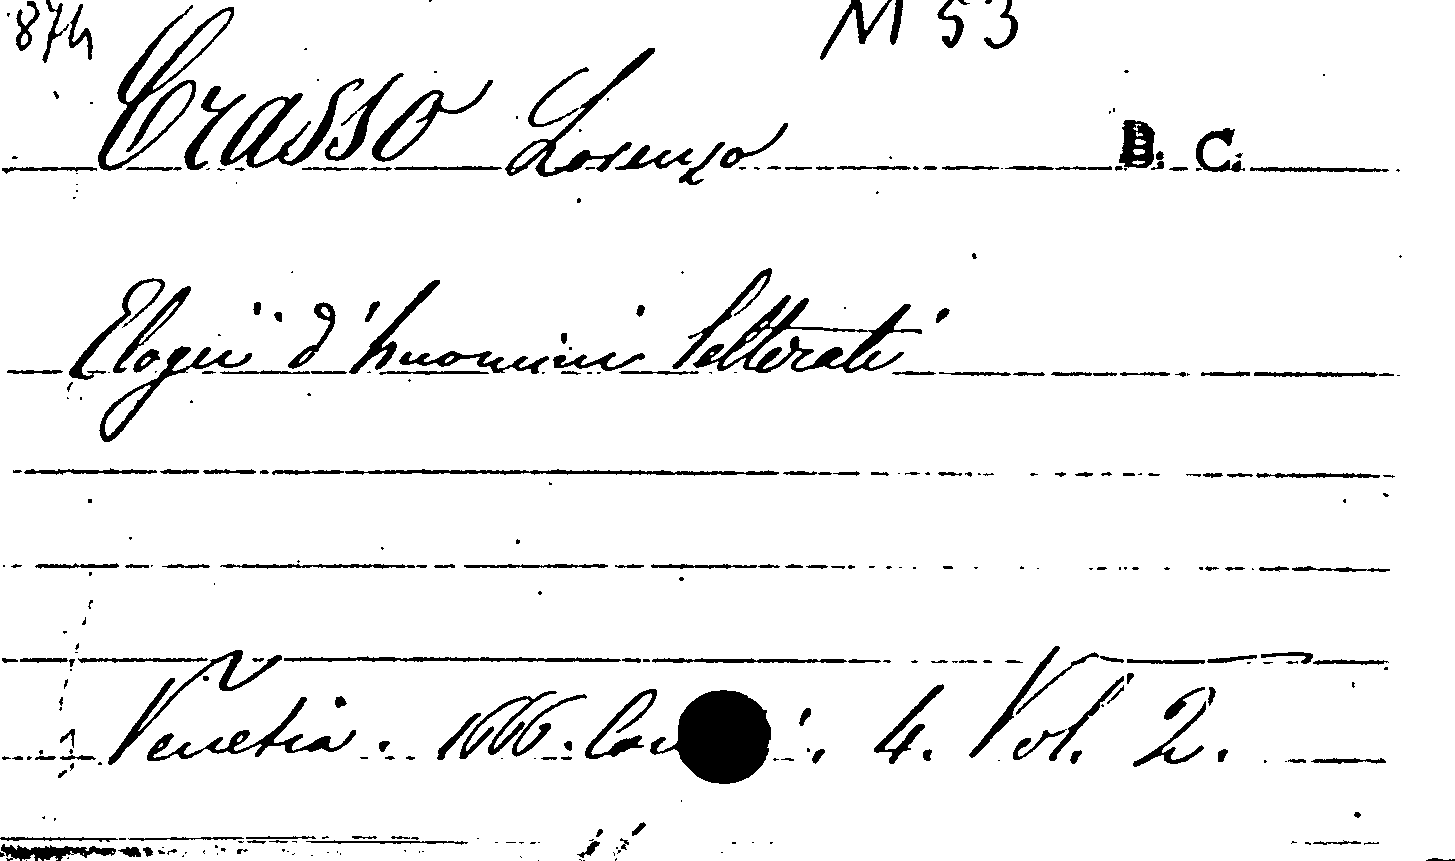 87h M 53
Crasso Lorenzo B. C.
Elogii d'huomini letterati
Venetia. 1666. 4. Vol. 2.